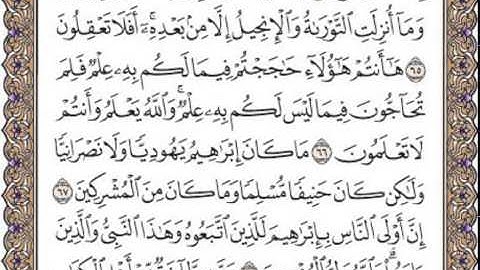 وَمَآ أُنزِلَتِ ٱلتَّوْرَىٰةُ وَٱلْإِنجِيلُ إِلَّا مِنۢ بَعْدِهِۦٓ ۚ أَفَلَا تَعْقِلُونَ
٦٥ هَـٰٓأَنتُمْ هَـٰٓؤُلَآءِ حَـٰجَجْتُمْ فِيمَا لَكُم بِهِۦ عِلْمٌ فَلِمَ
تُحَآجُّونَ فِيمَا لَيْسَ لَكُم بِهِۦ عِلْمٌ ۚ وَٱللَّهُ يَعْلَمُ وَأَنتُمْ
لَا تَعْلَمُونَ ٦٦ مَا كَانَ إِبْرَٰهِيمُ يَهُودِيًّا وَلَا نَصْرَانِيًّا
وَلَـٰكِن كَانَ حَنِيفًا مُّسْلِمًا وَمَا كَانَ مِنَ ٱلْمُشْرِكِينَ ٦٧
إِنَّ أَوْلَى ٱلنَّاسِ بِإِبْرَٰهِيمَ لَلَّذِينَ ٱتَّبَعُوهُ وَهَـٰذَا ٱلنَّبِىُّ وَٱلَّذِينَ